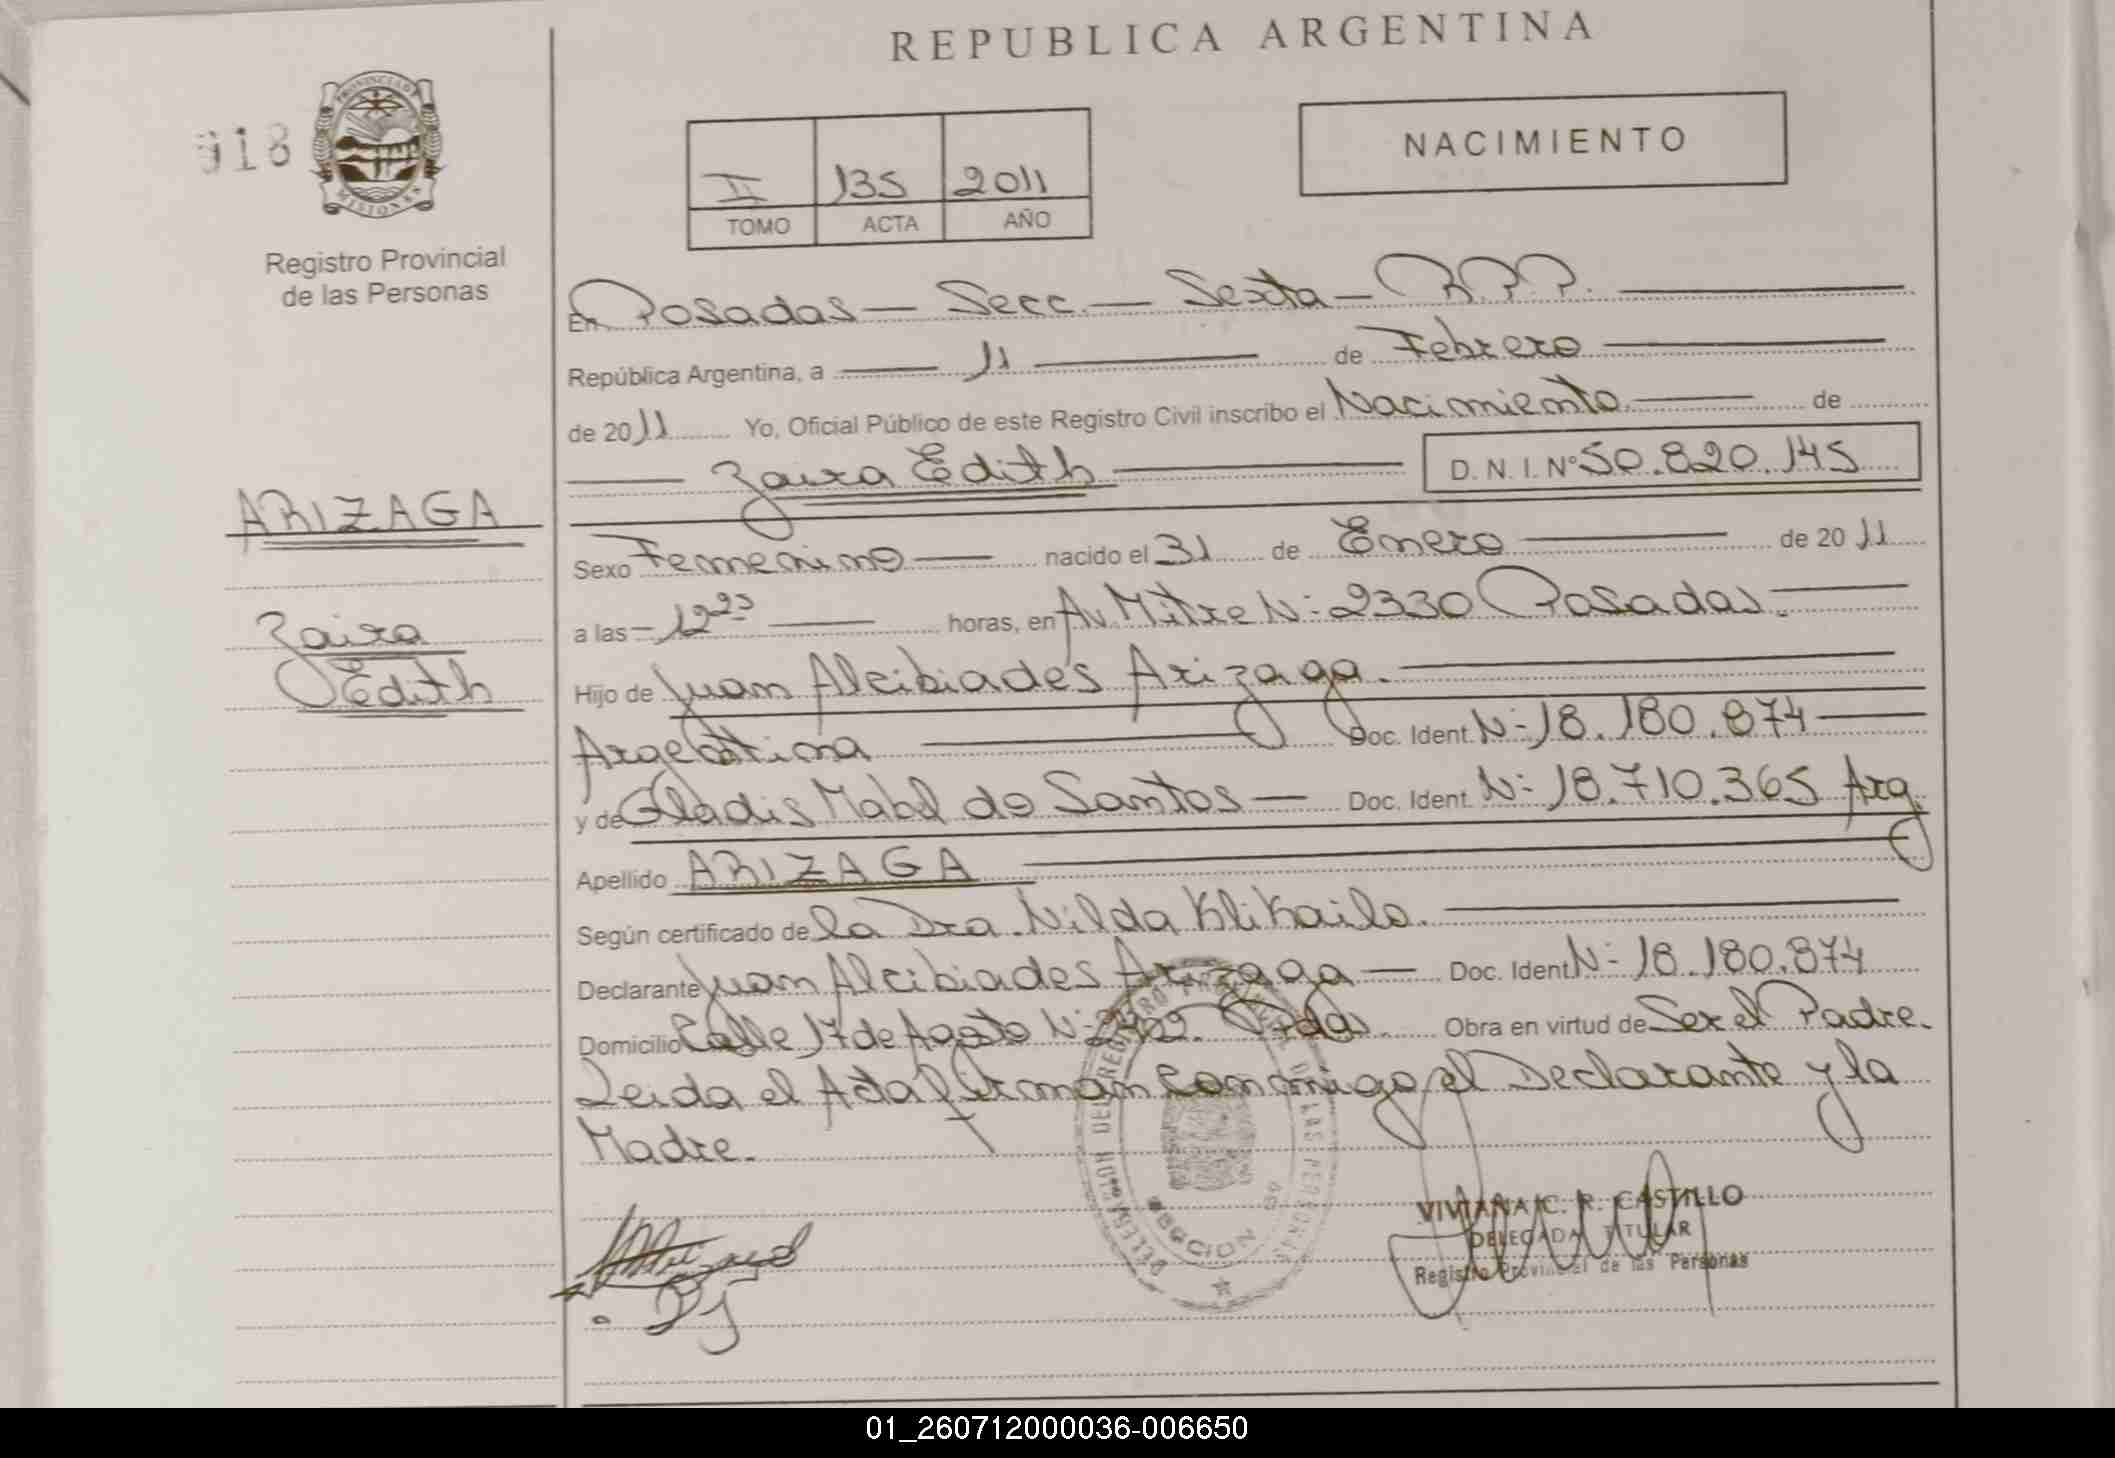 REPUBLICA ARGENTINA
018
PROVINCIA D MISIONES
Registro Provincial
de las Personas
II 135 2011
TOMO ACTA AÑO
NACIMIENTO
En Posadas — Secc. — Sexta — R.P.P.
República Argentina, a 11 de Febrero
de 2011 Yo, Oficial Público de este Registro Civil inscribo el Nacimiento de
Zaira Edith D.N.I. Nº 50.820.145
ARIZAGA
Zaira
Edith
Sexo Femenino nacido el 31 de Enero de 2011
a las 12 horas, en Av Mitre Nº 2330 Posadas.
Hijo de Juan Alcibiades Arizaga.
Argentina Doc. Ident. Nº 18.180.874
y de Gladis Mabel do Santos — Doc. Ident. Nº 18.710.365 Arg.
Apellido ARIZAGA
Según certificado de la Dra. Nilda Klikailo.
Declarante Juan Alcibiades Arizaga — Doc. Ident Nº 18.180.874
Domicilio Calle 17 de Agosto Nº Pdas. Obra en virtud de Ser el Padre.
Leida el Acta firman Conmigo el Declarante y la
Madre.
SECCION
VIVIANA C. R. CASTILLO
DELEGADA TITULAR
Registro Provincial de las Personas
01_260712000036-006650